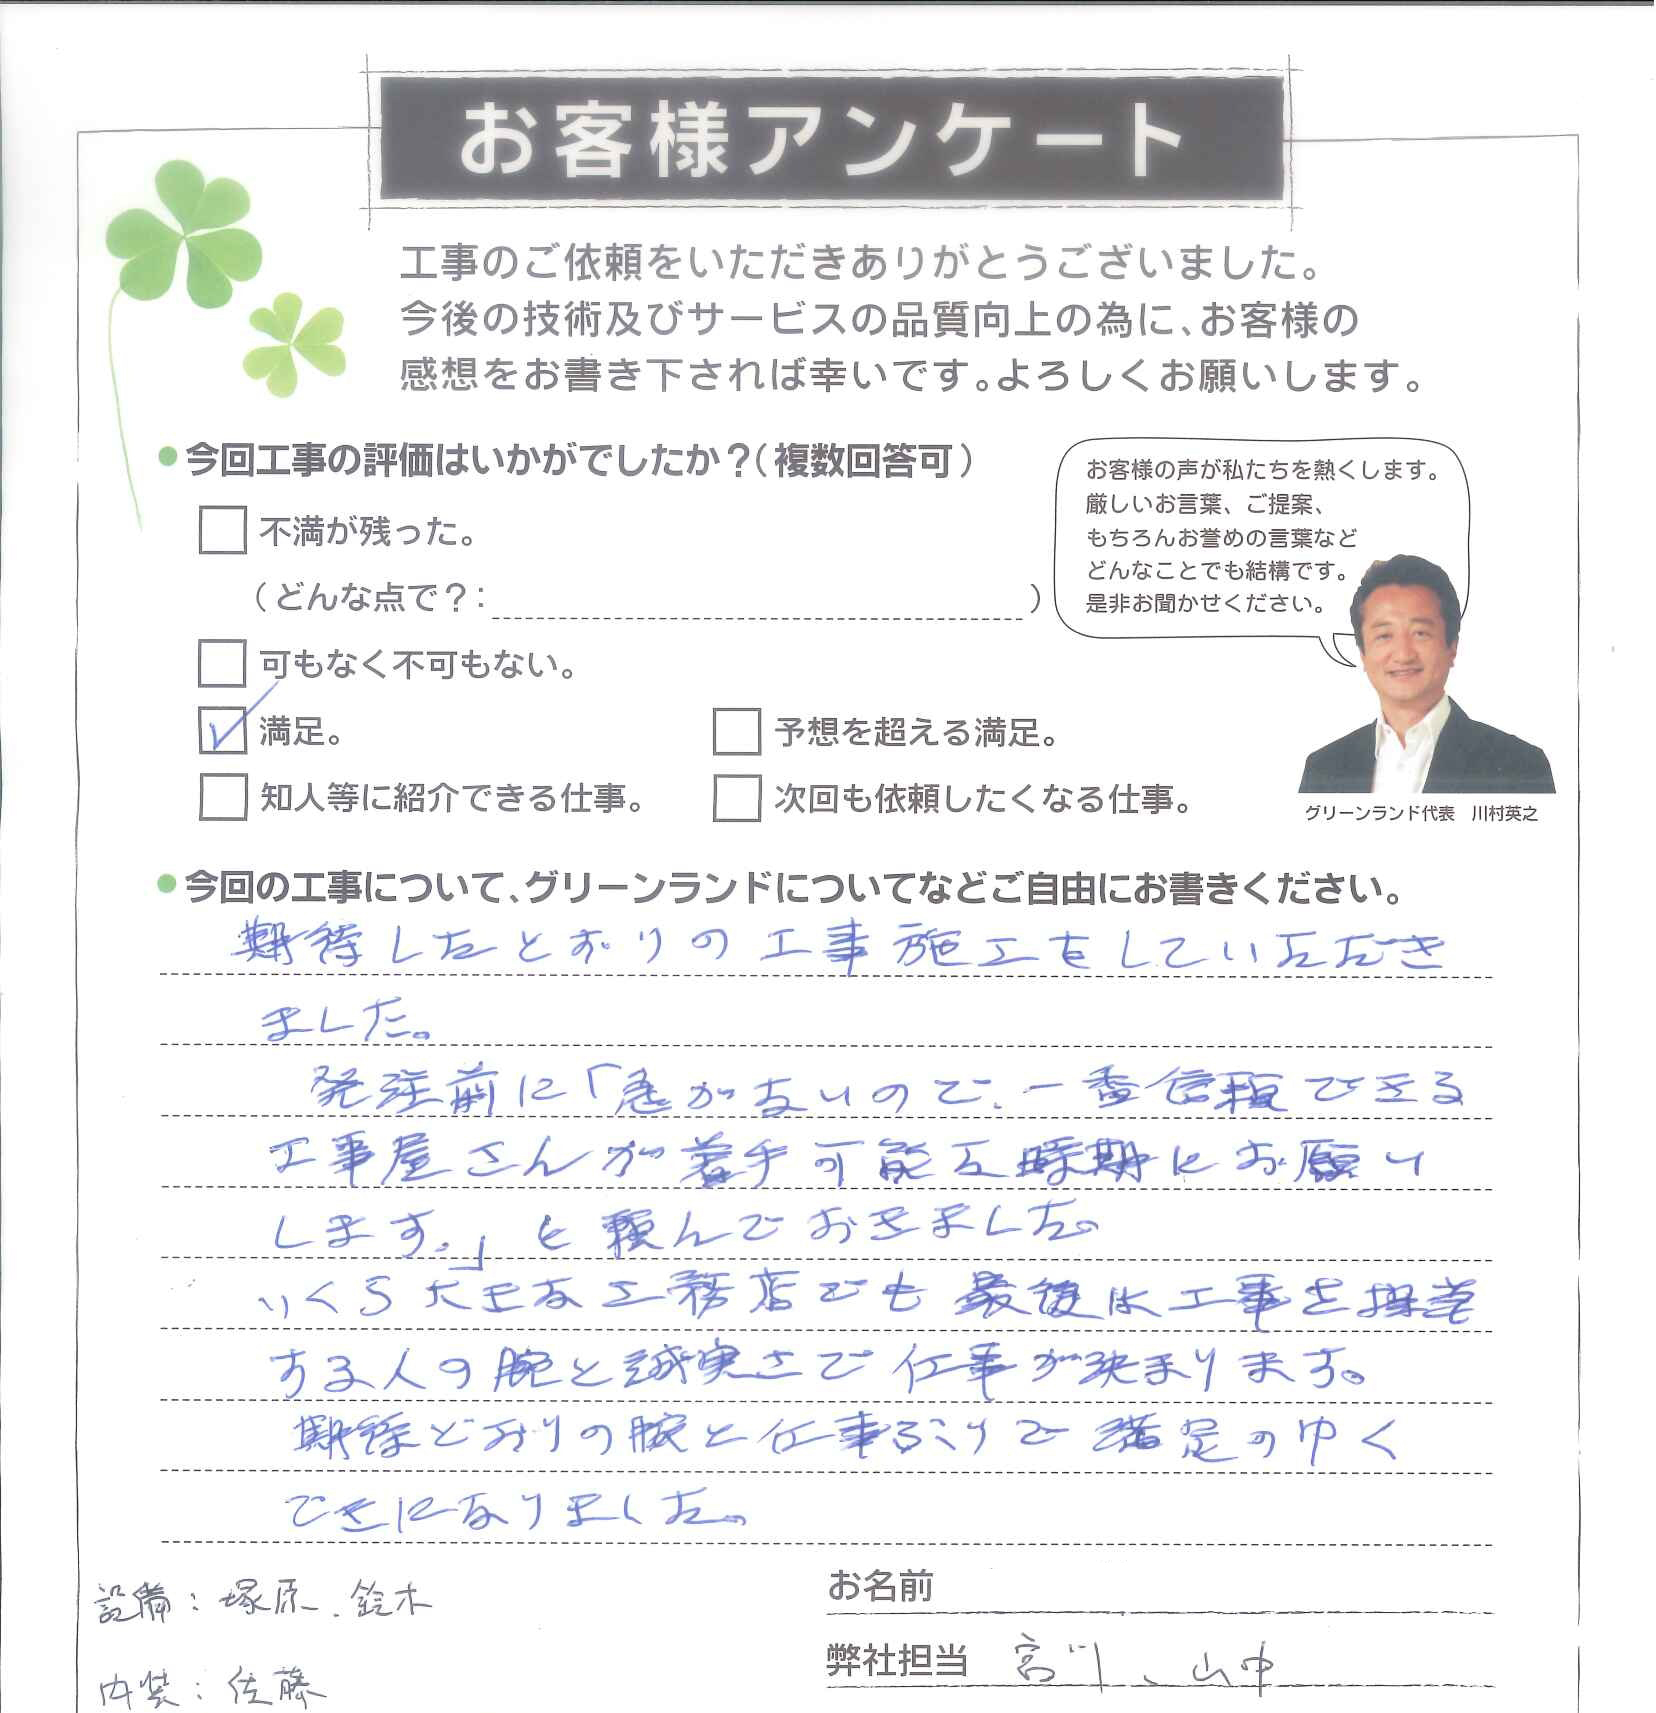 お客様アンケート
工事のご依頼をいただきありがとうございました。
今後の技術及びサービスの品質向上の為に、お客様の
感想をお書き下されば幸いです。よろしくお願いします。
今回工事の評価はいかがでしたか？（複数回答可）
不満が残った。
（どんな点で？：　）
可もなく不可もない。
満足。
予想を超える満足。
知人等に紹介できる仕事。
次回も依頼したくなる仕事。
お客様の声が私たちを熱くします。
厳しいお言葉、ご提案、
もちろんお誉めの言葉など
どんなことでも結構です。
是非お聞かせください。
グリーンランド代表　川村英之
今回の工事について、グリーンランドについてなどご自由にお書きください。
期待したとおりの工事施工をしていただき
ました。
発注前に「急がないので、一番信頼できる
工事屋さんが着手可能な時期にお願い
します。」と頼んでおきました。
いくら大きな工務店でも最後は工事を担当
する人の腕と誠実さで仕事が決まります。
期待どおりの腕と仕事ぶりで満足のゆく
できになりました。
設備：塚原、鈴木
内装：佐藤
お名前
弊社担当　宮川、山中